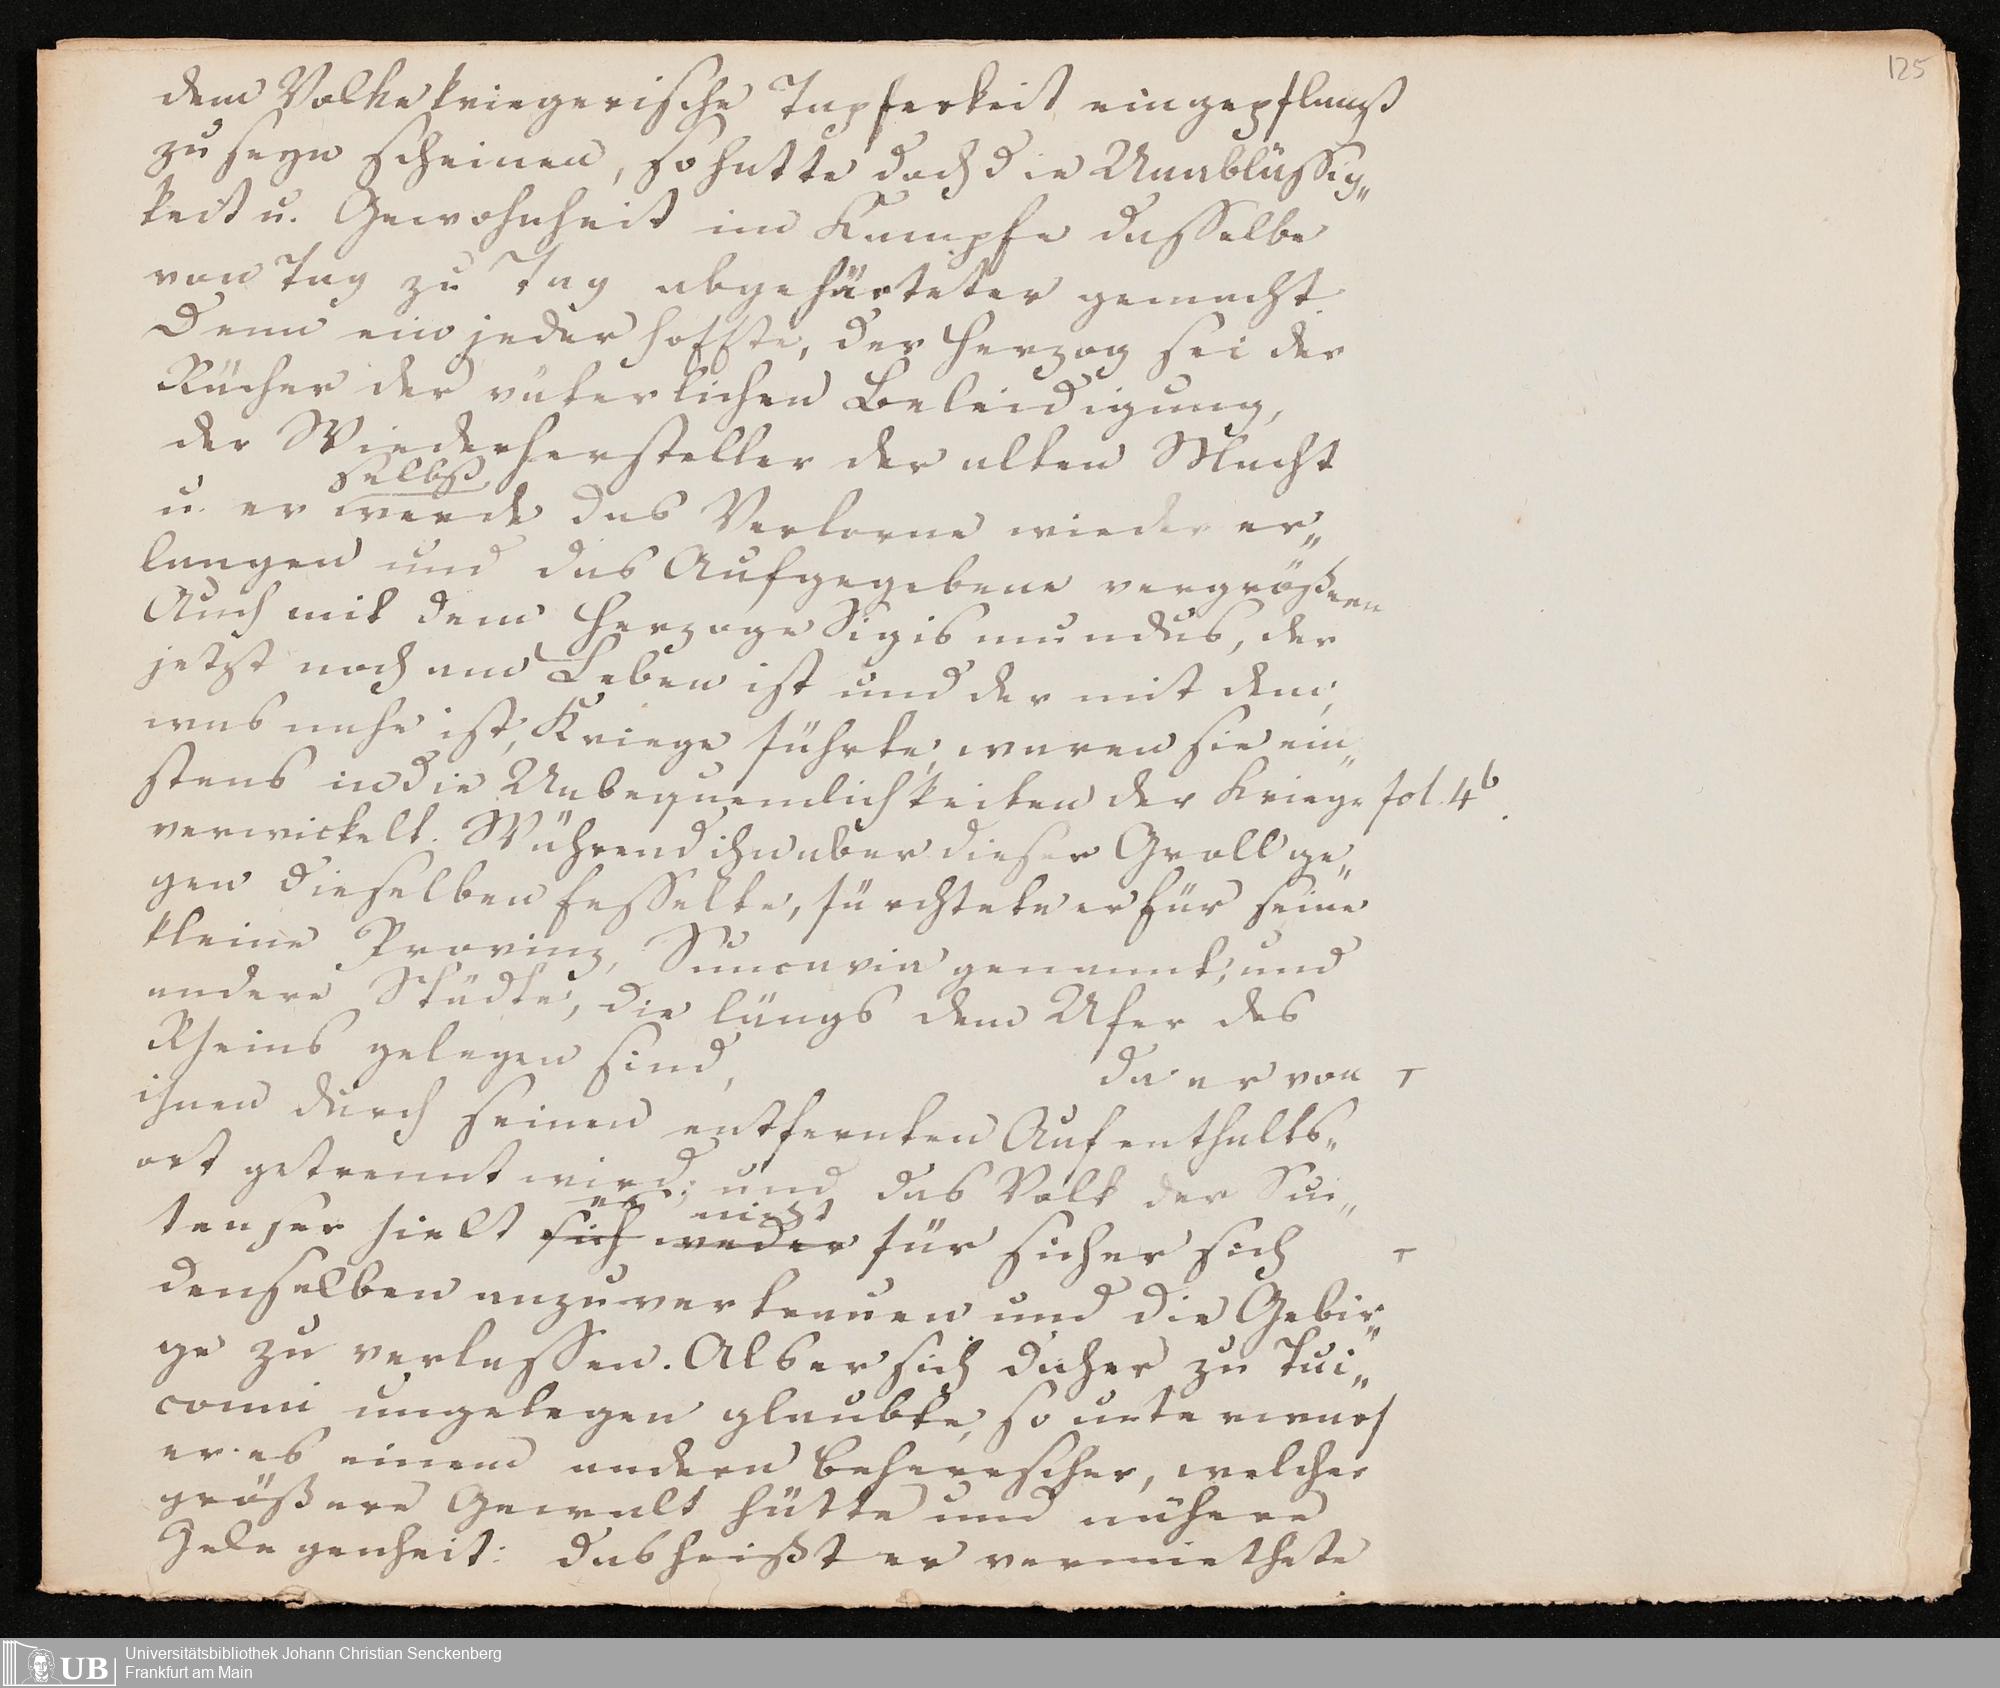 125
dem Volke kriegerische Tapferkeit eingepflanzt
zu seyn scheinen, so hatte doch die Unabläßig„
keit u. Gewohnheit im Kampfe dasselbe
von Tag zu Tag abgehärteter gemacht.
Denn ein jeder hoffte, der Herzog sei der
Rächer der väterlichen Beleidigung,
der Wiederhersteller der alten Macht
selbst
u. er werde das Verlorne wieder er„
langen und das Aufgegebene vergrößern
Auch mit dem Herzoge Sigismundus, der
jetzt noch am Leben ist und der mit dem,
was nahe ist, Kriege führte, waren sie ein„
stens in die Unbequemlichkeiten der Kriege fol. 4b.
verwickelt. Während ihn aber dieser Groll ge„
gen dieselben fesselte, fürchtete er für seine
kleine Provinz, Suncavia genannt; und
andere Städte, die längs dem Ufer des
Rheins gelegen sind,
da er von
ihnen durch seinen entfernten Aufenthalts„
ort getrennt wird; und das Volk der Sui„
er nicht
tenser hielt sich weder für sicher sich
denselben anzuvertrauen und die Gebir„
ge zu verlassen. Als er sich daher zu Tui„
conni ungelegen glaubte, so unterwarf
er es einem andern Beherrscher, welcher
größere Gewalt hätte und nähere
Gelegenheit: das heißt er vermiethete
UB
Universitätsbibliothek Johann Christian Senckenberg
Frankfurt am Main